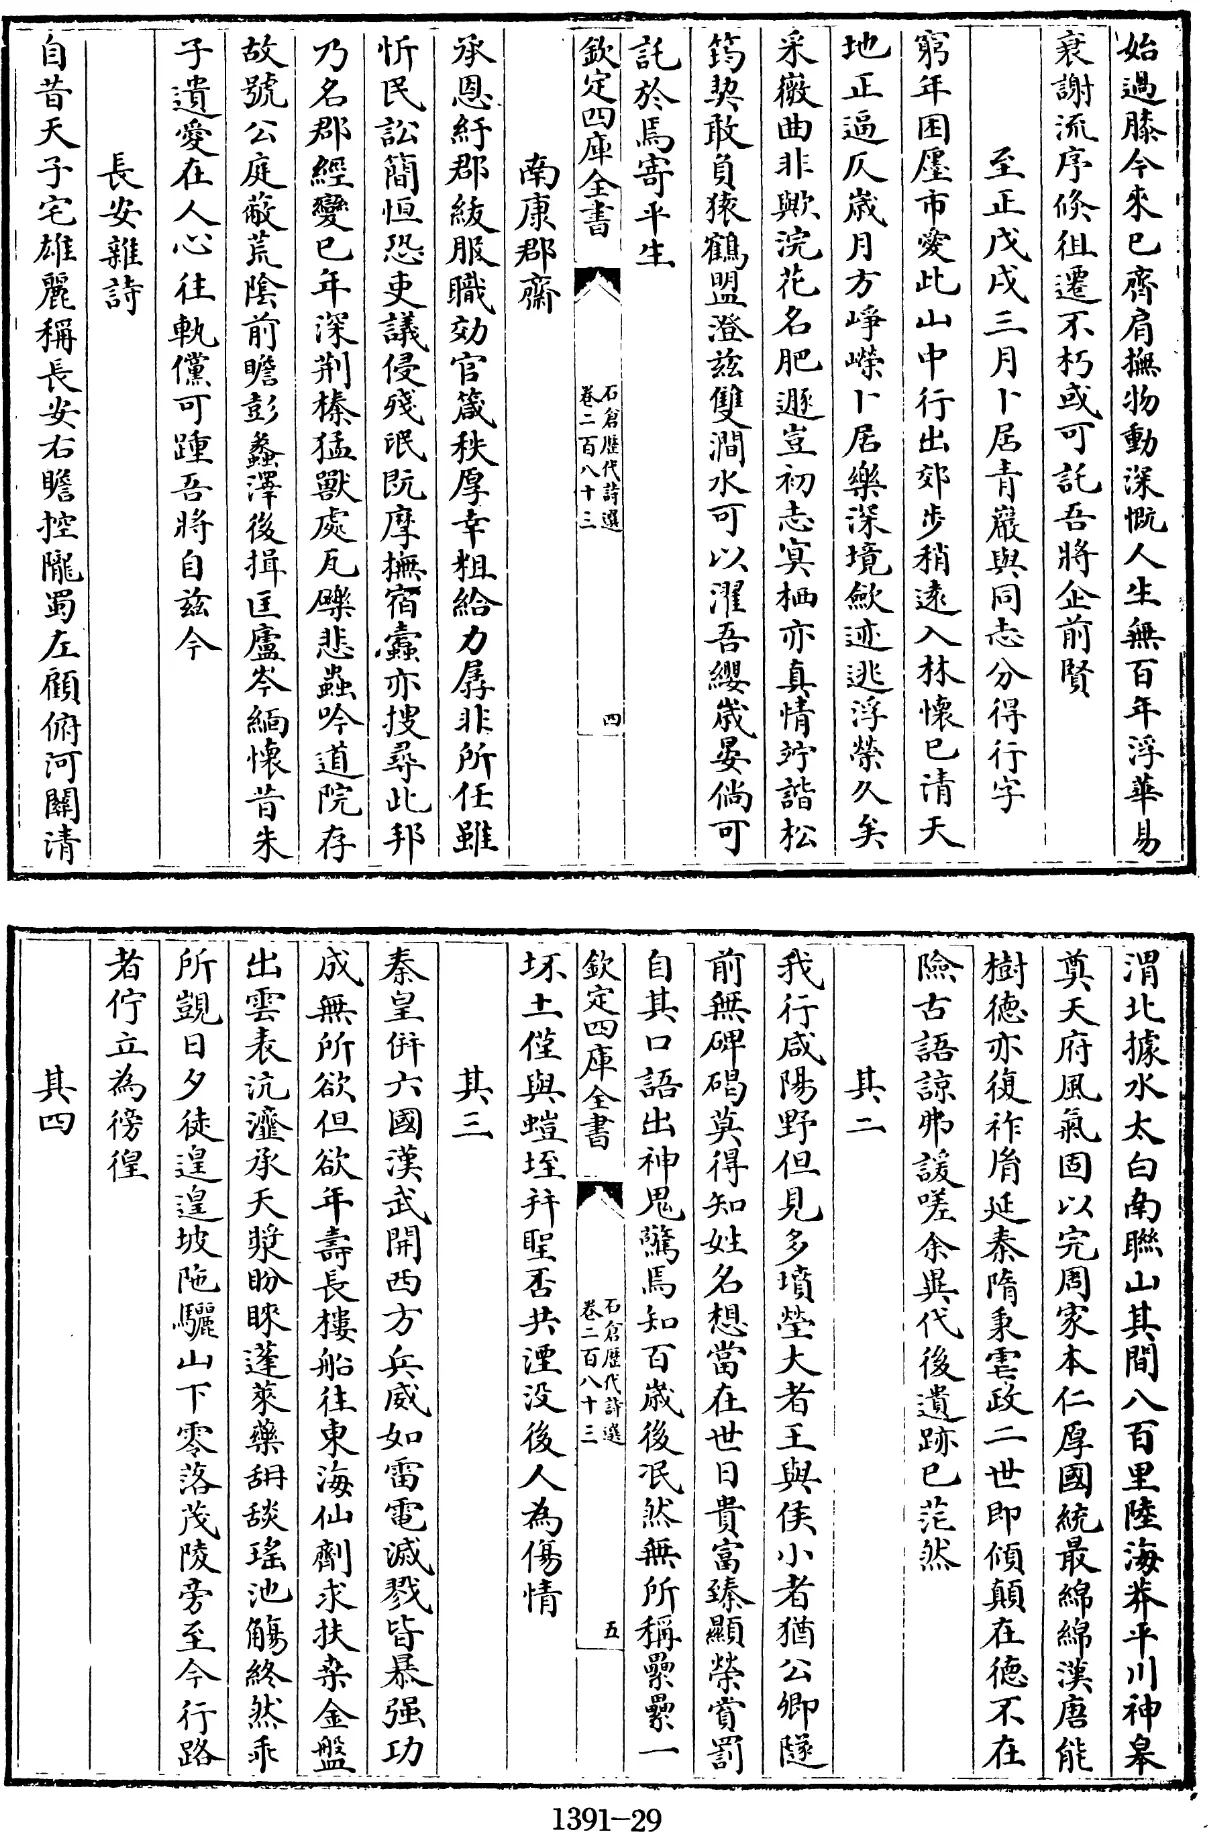 始過膝今來已齊肩撫物動深慨人生無百年浮華易
衰謝流序倐徂遷不朽或可託吾將企前賢
至正戊戌三月卜居青巖與同志分得行字
窮年困廛市愛此山中行出郊步稍逺入林懷已清天
地正逼仄歳月方崢嶸卜居樂深境歛迹逃浮榮久矣
采薇曲非歟浣花名肥遯豈初志冥栖亦真情竚諧松
筠契敢負猿鶴盟澄兹雙澗水可以濯吾纓歳晏倘可
託於焉寄平生
欽定四庫全書
石倉歴代詩選
卷二百八十三
四
南康郡齋
承恩紆郡紱服職効官箴秩厚幸粗給力孱非所任雖
忻民訟簡恒恐吏議侵殘氓既摩撫宿蠹亦搜尋此邦
乃名郡經變已年深荆榛猛獸處瓦礫悲蟲吟道院存
故號公庭蔽荒陰前瞻彭蠡澤後揖匡廬岑緬懷昔朱
子遺愛在人心往軌儻可踵吾將自兹今
長安雜詩
自昔天子宅雄麗稱長安右瞻控隴蜀左顧俯河闗清
渭北據水太白南聯山其間八百里陸海莽平川神臯
奠天府風氣固以完周家本仁厚國統最綿綿漢唐能
樹德亦復祚脩延秦隋秉虐政二世即傾顛在德不在
險古語諒弗諼嗟余異代後遺跡已茫然
其二
我行咸陽野但見多墳塋大者王與侯小者猶公卿隧
前無碑碣莫得知姓名想當在世日貴富臻顯榮賞罰
自其口語出神鬼驚焉知百歳後泯然無所稱纍纍一
欽定四庫全書
石倉歴代詩選
卷二百八十三
五
坏土僅與螘垤并聖否共湮没後人為傷情
其三
秦皇併六國漢武開西方兵威如雷電㓕戮皆暴强功
成無所欲但欲年壽長樓船往東海仙劑求扶桑金盤
出雲表沆瀣承天漿盼睞蓬萊藥䑛舕瑤池觴終然乖
所覬日夕徒遑遑坡陁驪山下零落茂陵旁至今行路
者佇立為徬徨
其四
1391-29